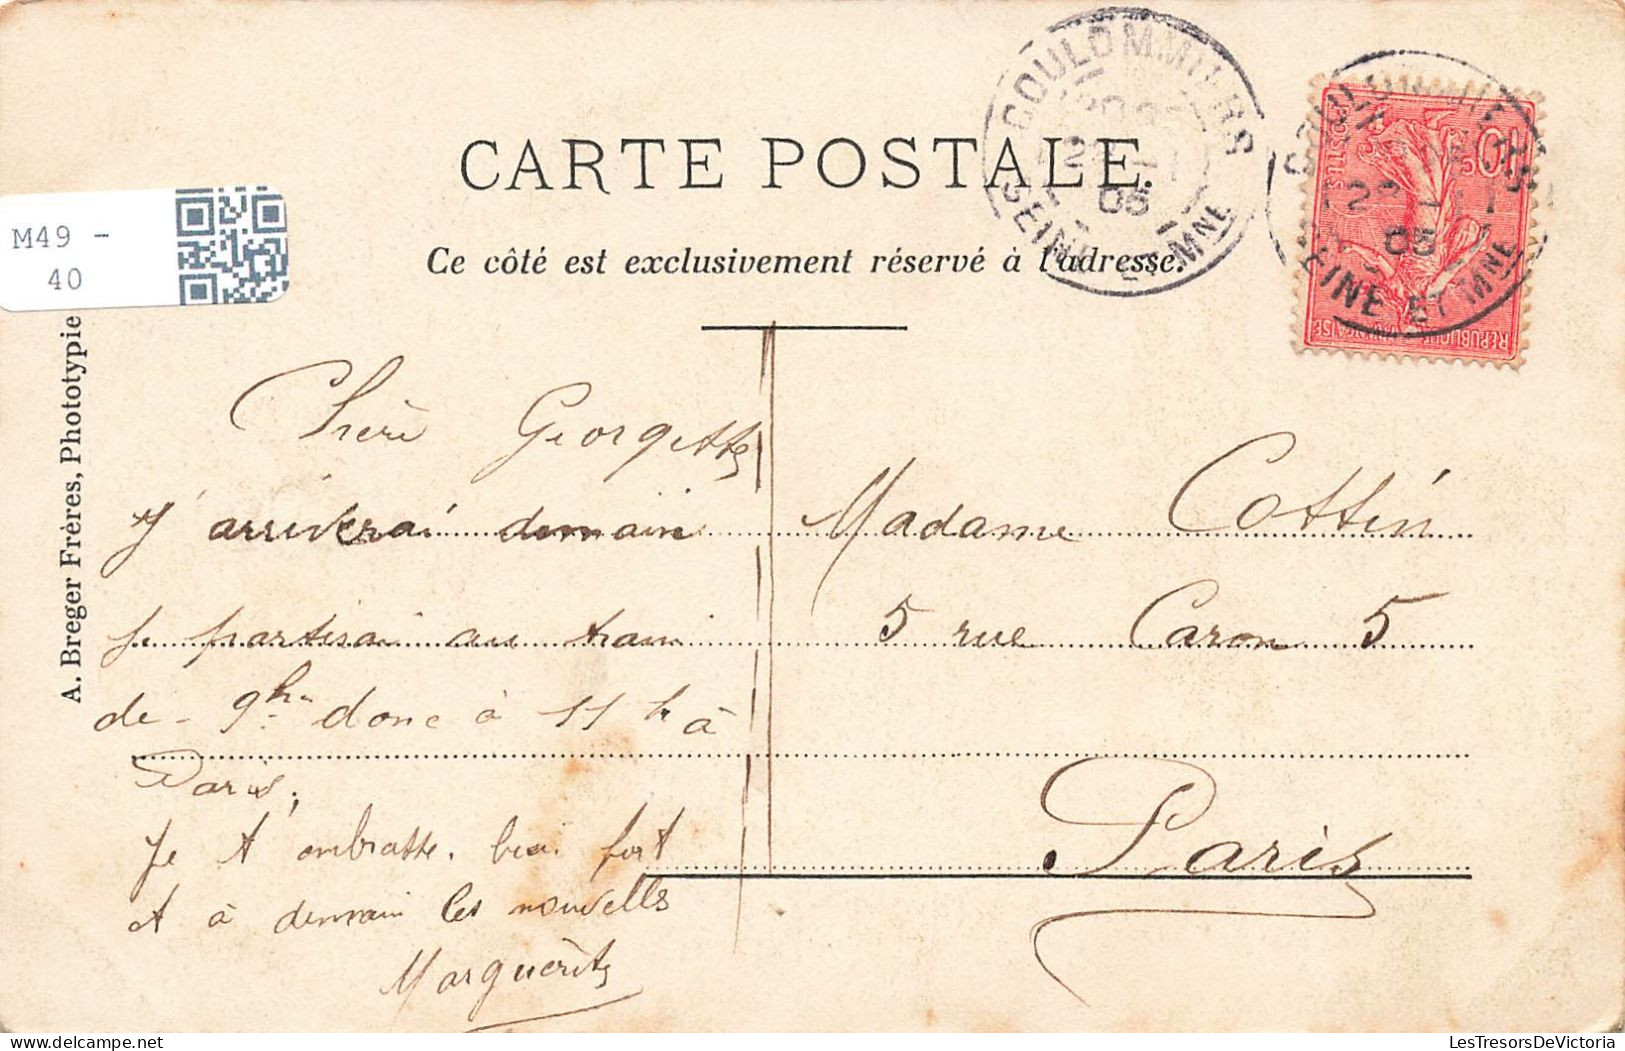 CARTE POSTALE
Ce côté est exclusivement réservé à l'adresse.
COULOMMIERS
22 -1
05
SEINE ET MNE
COULOMMIERS
22 -1
05
SEINE ET MNE
10
POSTES
REPUBLIQUE FRANÇAISE
M49 -
40
A. Breger Frères, Phototypie
Chère Georgette
J'arriverai demain
je partirai au train
de 9h donc à 11 h à
Paris,
Je t'embrasse bien fort
et à demain les nouvelles
Marguerite
Madame Cottin
5 rue Caron 5
Paris
LesTresorsDeVictoria